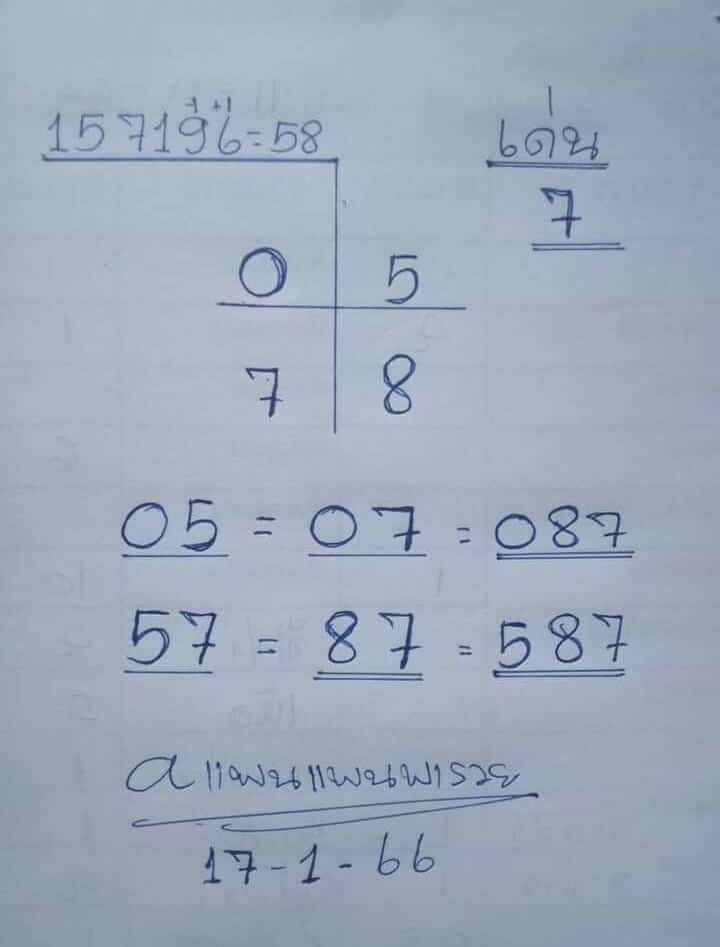 -1 +1
157196=58
เด่น
7
0 5
7 8
05 = 07 = 087
57 = 87 = 587
a แพนแพนพารวย
17-1-66